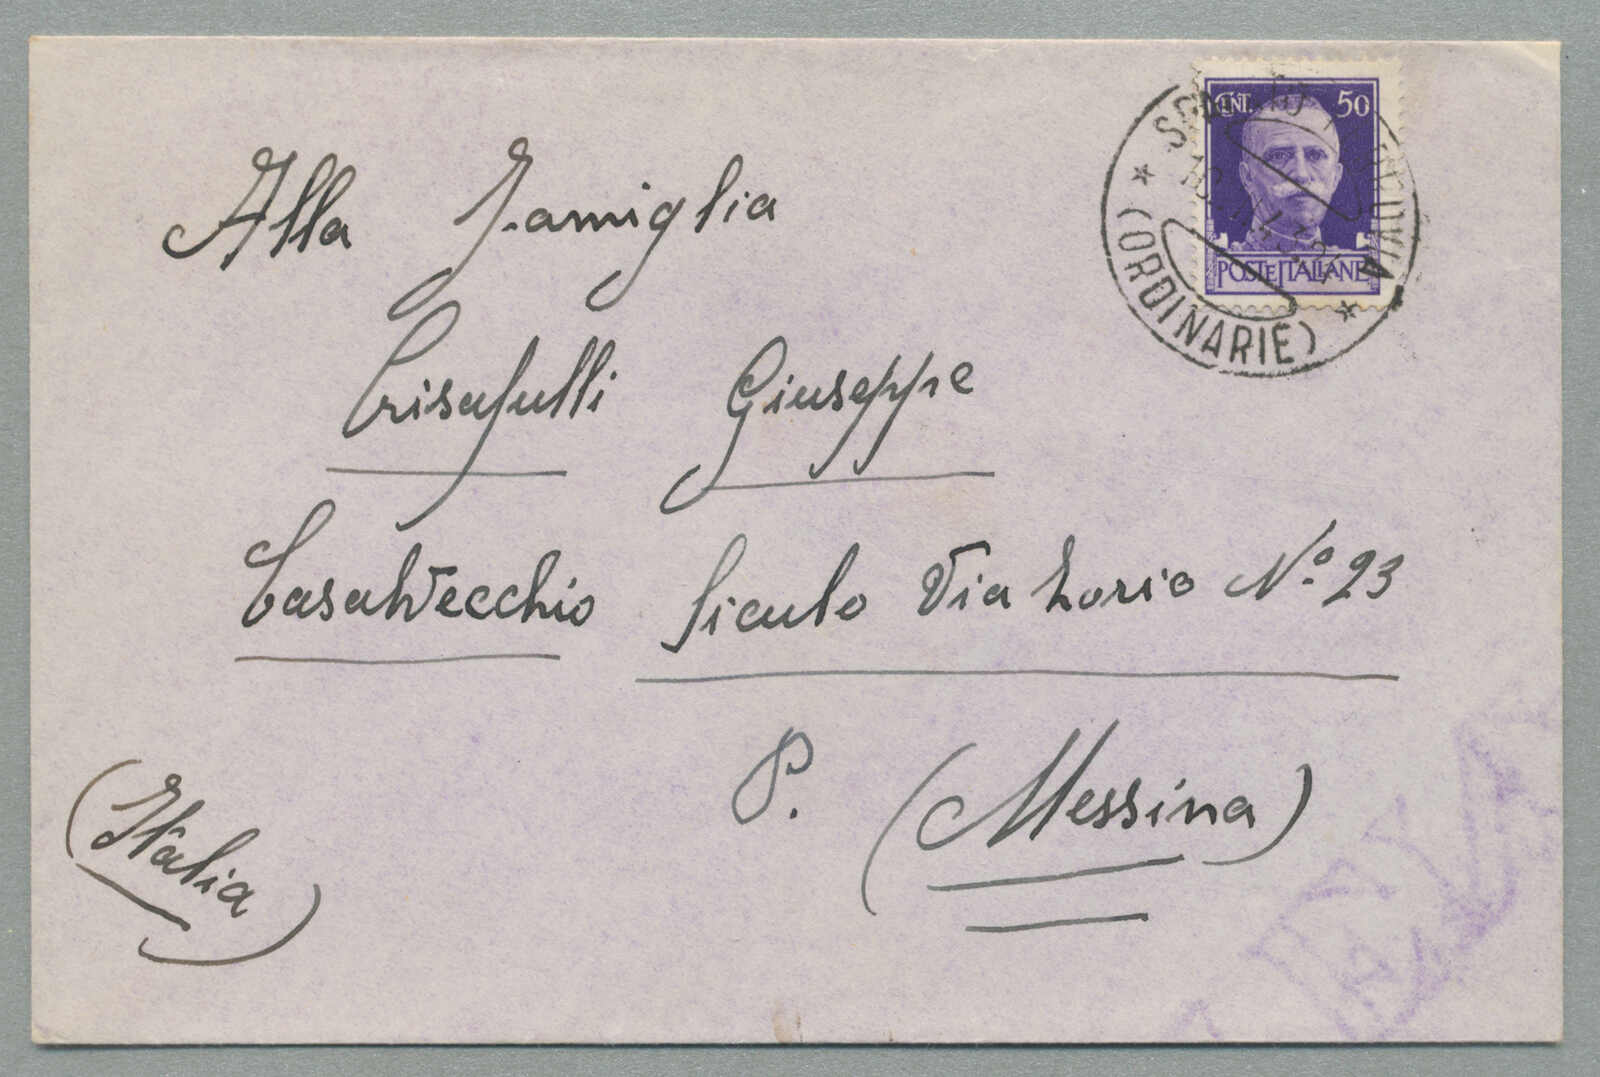 CENT. 50
POSTE ITALIANE
(ORDINARIE)
Alla Famiglia
Crisafulli Giuseppe
Casalvecchio Siculo Via Lorio Nº. 23
P. (Messina)
(Italia)